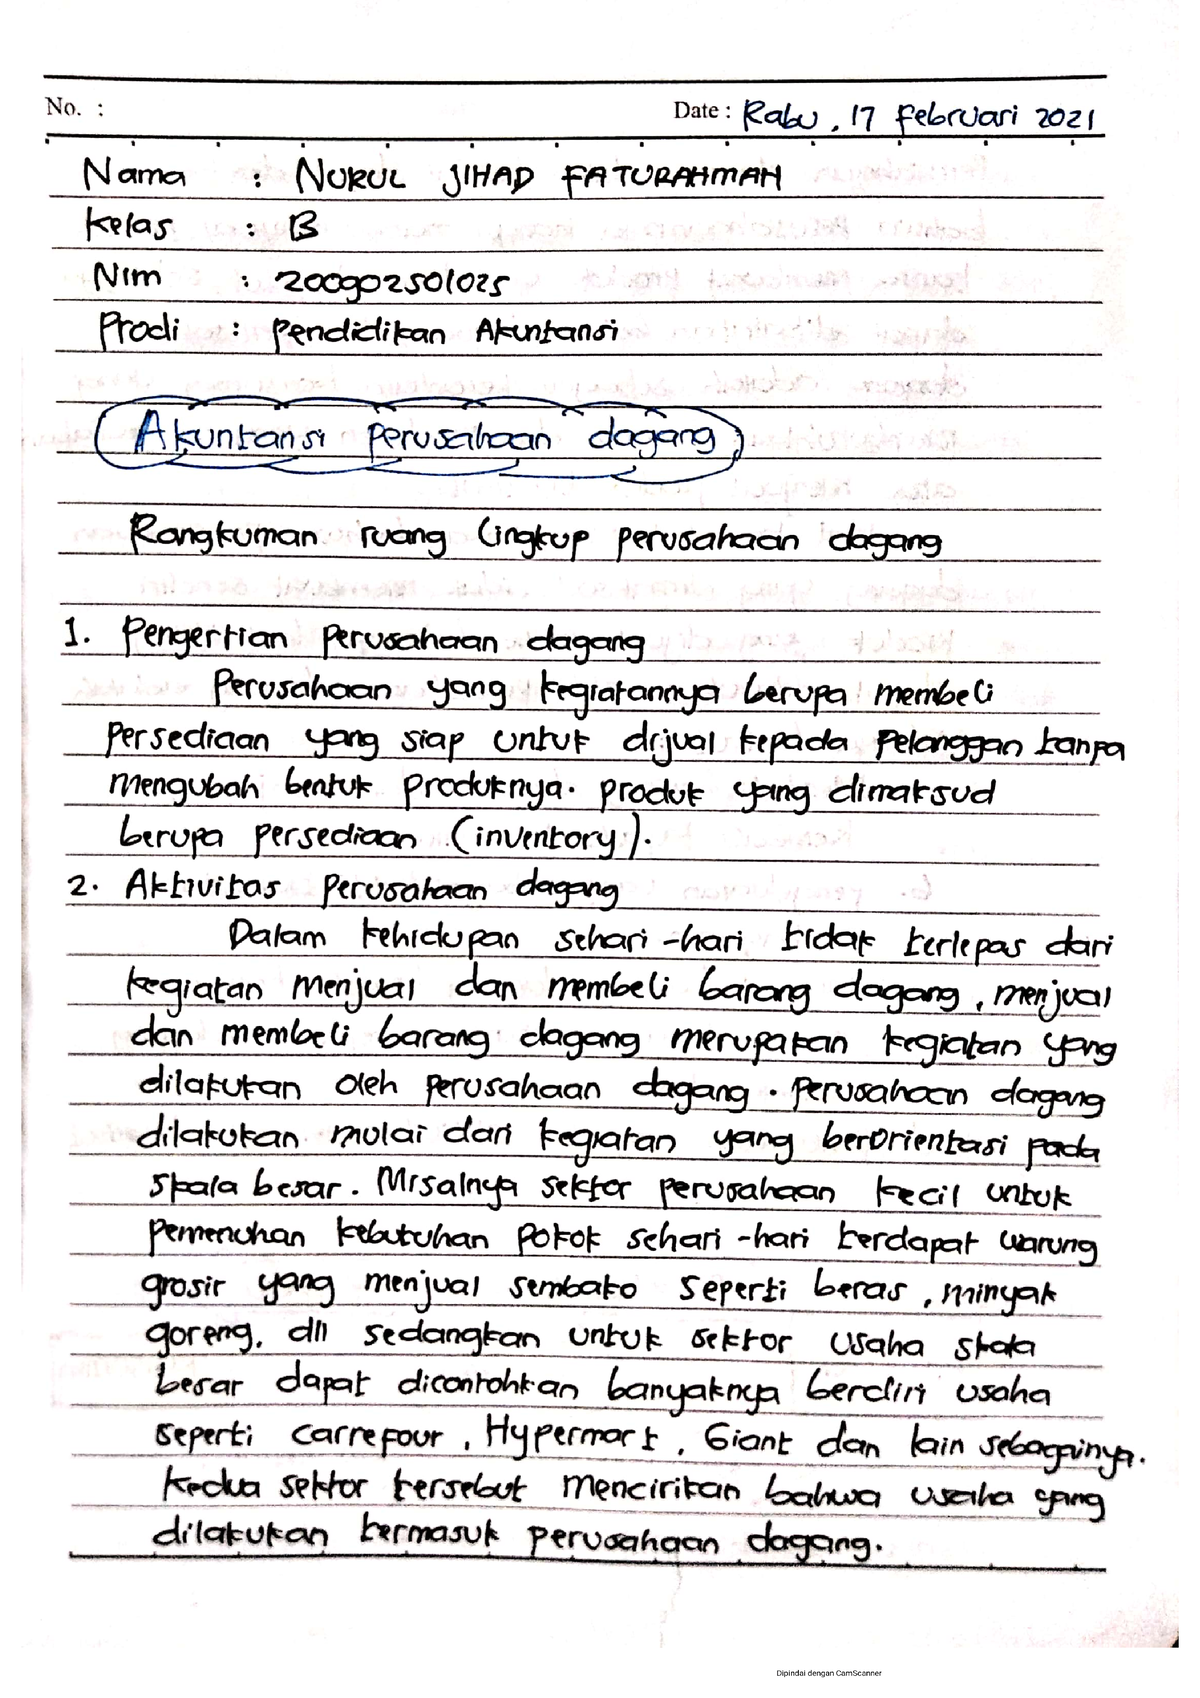 No. :
Date : Rabu, 17 Februari 2021
Nama : NURUL JIHAD FATURAHMAH
Kelas : B
Nim : 200902501025
Prodi : Pendidikan Akuntansi
Akuntansi perusahaan dagang
Rangkuman ruang lingkup perusahaan dagang
1. Pengertian perusahaan dagang
Perusahaan yang kegiatannya berupa membeli
persediaan yang siap untuk dijual kepada pelanggan tanpa
mengubah bentuk produknya. produk yang dimaksud
berupa persediaan (inventory).
2. Aktivitas perusahaan dagang
Dalam kehidupan sehari-hari tidak terlepas dari
kegiatan menjual dan membeli barang dagang, menjual
dan membeli barang dagang merupakan kegiatan yang
dilakukan oleh perusahaan dagang. perusahaan dagang
dilakukan mulai dari kegiatan yang berorientasi pada
skala besar. Misalnya sektor perusahaan kecil untuk
pemenuhan kebutuhan pokok sehari-hari terdapat warung
grosir yang menjual sembako seperti beras, minyak
goreng, dll sedangkan untuk sektor usaha skala
besar dapat dicontohkan banyaknya berdiri usaha
seperti carrefour, Hypermart, Giant dan lain sebagainya.
Kedua sektor tersebut mencirikan bahwa usaha yang
dilakukan termasuk perusahaan dagang.
Dipindai dengan CamScanner